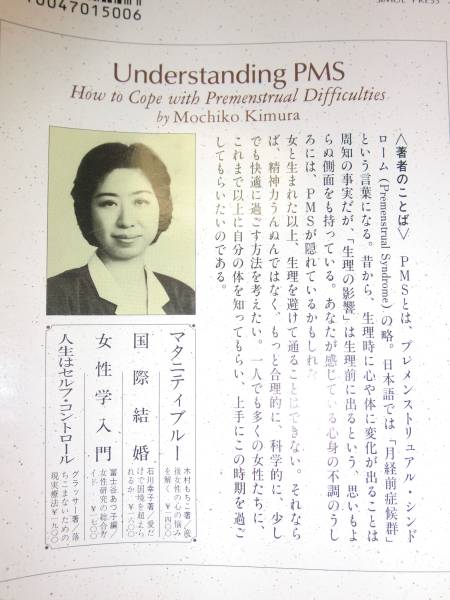 70047015006
SIMUL PRESS
Understanding PMS
How to Cope with Premenstrual Difficulties
by Mochiko Kimura
〈著者のことば〉 PMSとは、プレメンストリュアル・シンド
ローム (Premenstrual Syndrome) の略。日本語では「月経前症候群」
という言葉になる。昔から、生理時に心や体に変化が出ることは
周知の事実だが、「生理の影響」は生理前に出るという、思いもよ
らぬ側面をも持っている。あなたが感じている心身の不調のうし
ろには、PMSが隠れているかもしれ
女と生まれた以上、生理を避けて通ることはできない。それなら
ば、精神力うんぬんではなく、もっと合理的に、科学的に、少し
でも快適に過ごす方法を考えたい。一人でも多くの女性たちに、
これまで以上に自分の体を知ってもらい、上手にこの時期を過ご
してもらいたいのである。
マタニティブルー
木村もちこ著/産
後女性の心の悩み
を解く ¥一四〇〇
国際結婚
石川幸子著/愛だ
けで国境を超えら
れるか ¥一六〇〇
女性学入門
冨士谷あつ子編/
女性研究の総合ガ
イド ¥一七〇〇
人生はセルフ・コントロール
グラッサー著/落
ちこまないための
現実療法 ¥一九〇〇